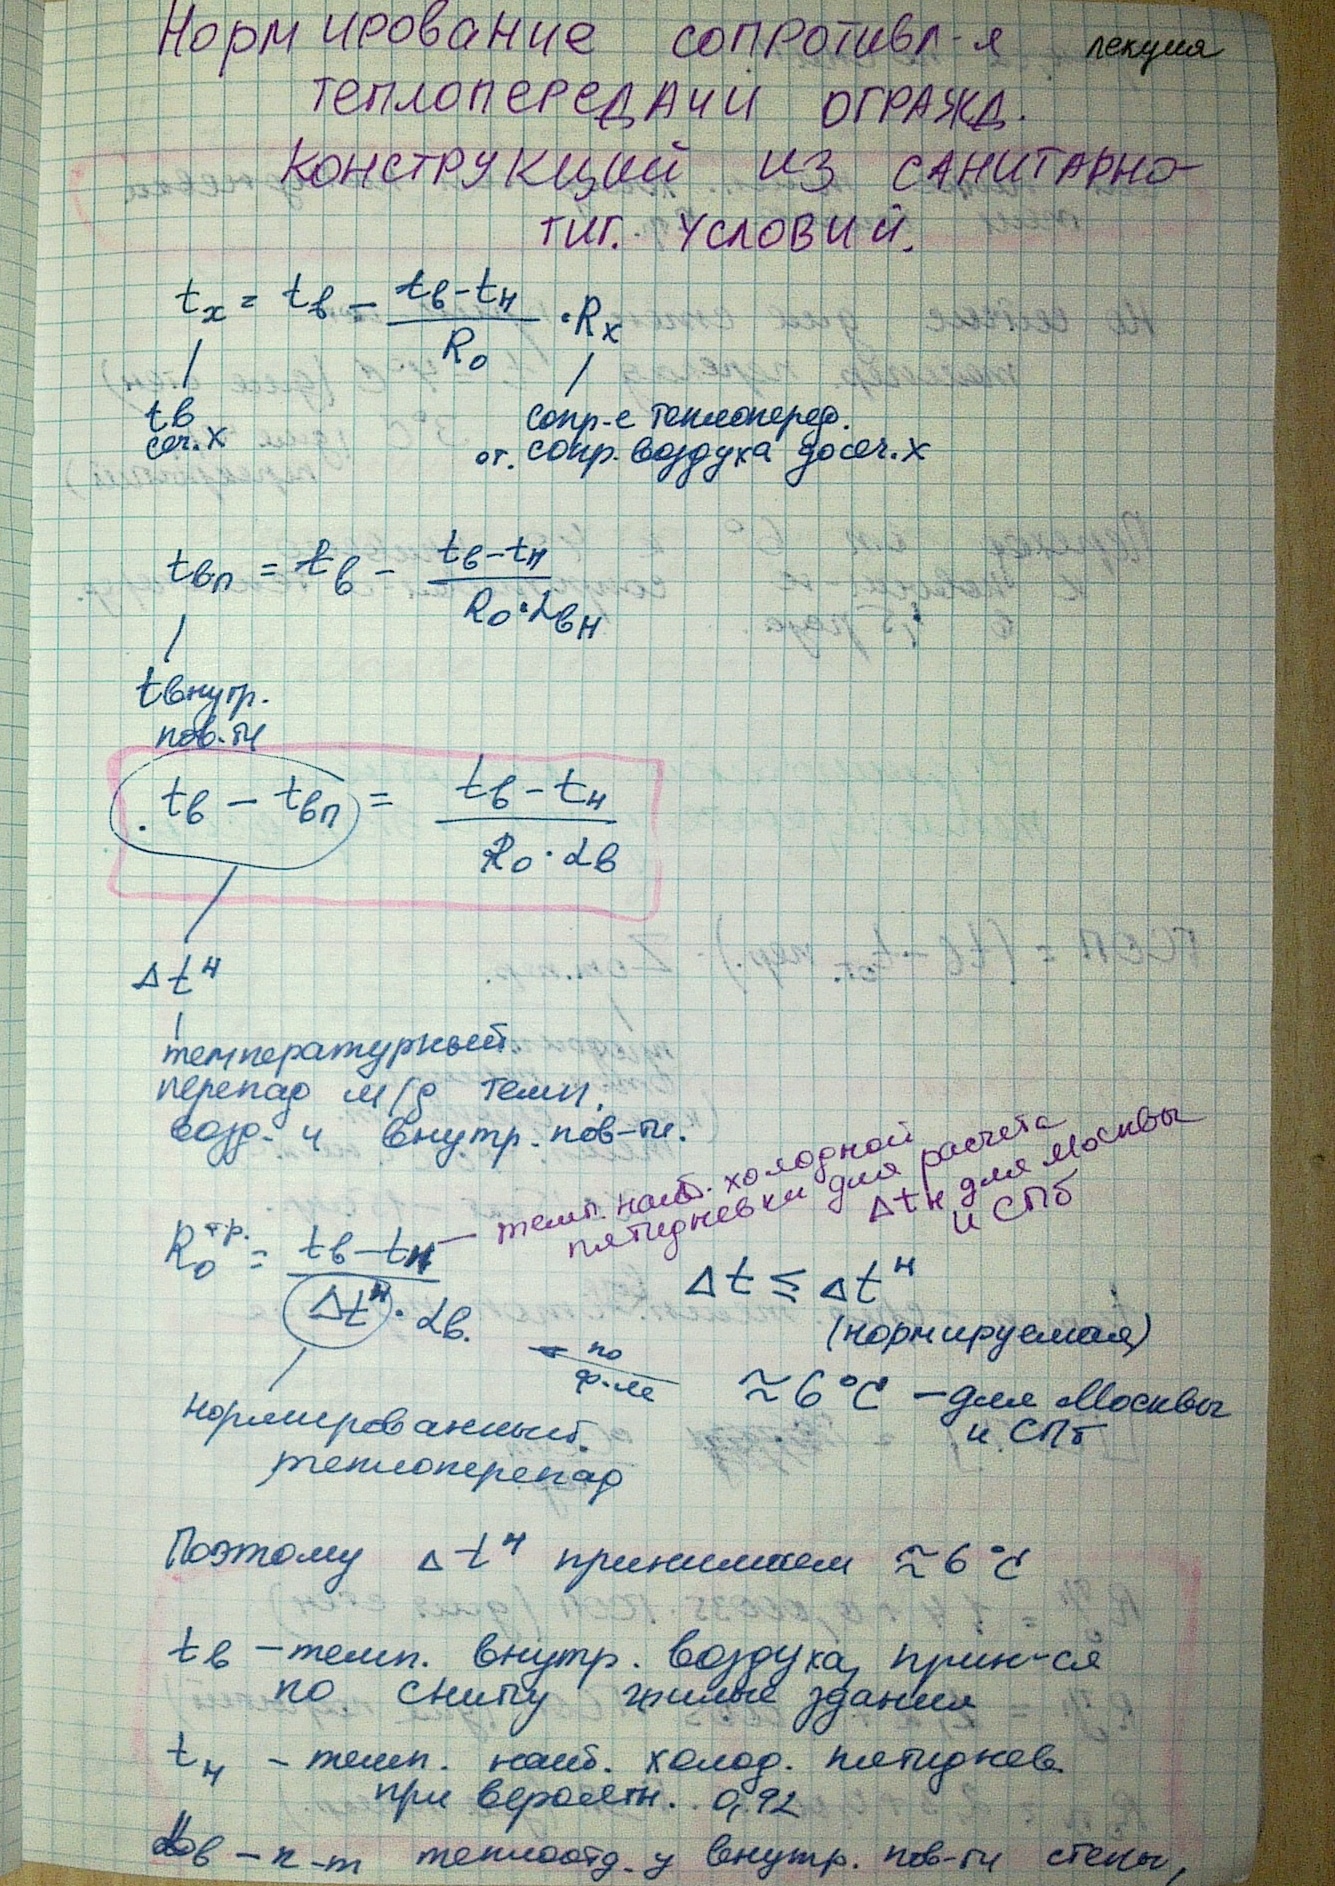 Нормирование сопротивл-я лекция
теплопередачи огражд.
конструкций из санитарно-
гиг. условий.
tx = tв - (tв-tн)/Rо · Rx
tв
сеч. x
сопр-е теплоперед.
от. сопр. воздуха до сеч. x
tвп = tв - (tв-tн)/(Rо·αвн)
tвнутр.
пов-ти
tв - tвп = (tв-tн)/(Rо·αв)
Δtн
температурный
перепад м/д темп.
возд. и внутр. пов-ти.
Rотр. = (tв-tн)/(Δtн·αв.)
темп. наиб. холодной
пятидневки для расчета
Δtн для Москвы
и СПб
Δt ≤ Δtн
(нормируемая)
по
ф-ле
≈6°C - для Москвы
и СПб
нормированный
теплоперепад
Поэтому Δtн принимаем ≈6°C
tв - темп. внутр. воздуха, прин-ся
по снипу жилые здания
tн - темп. наиб. холод. пятиднев.
при вероятн. 0,92
αв - к-т теплоотд. у внутр. пов-ти стены,